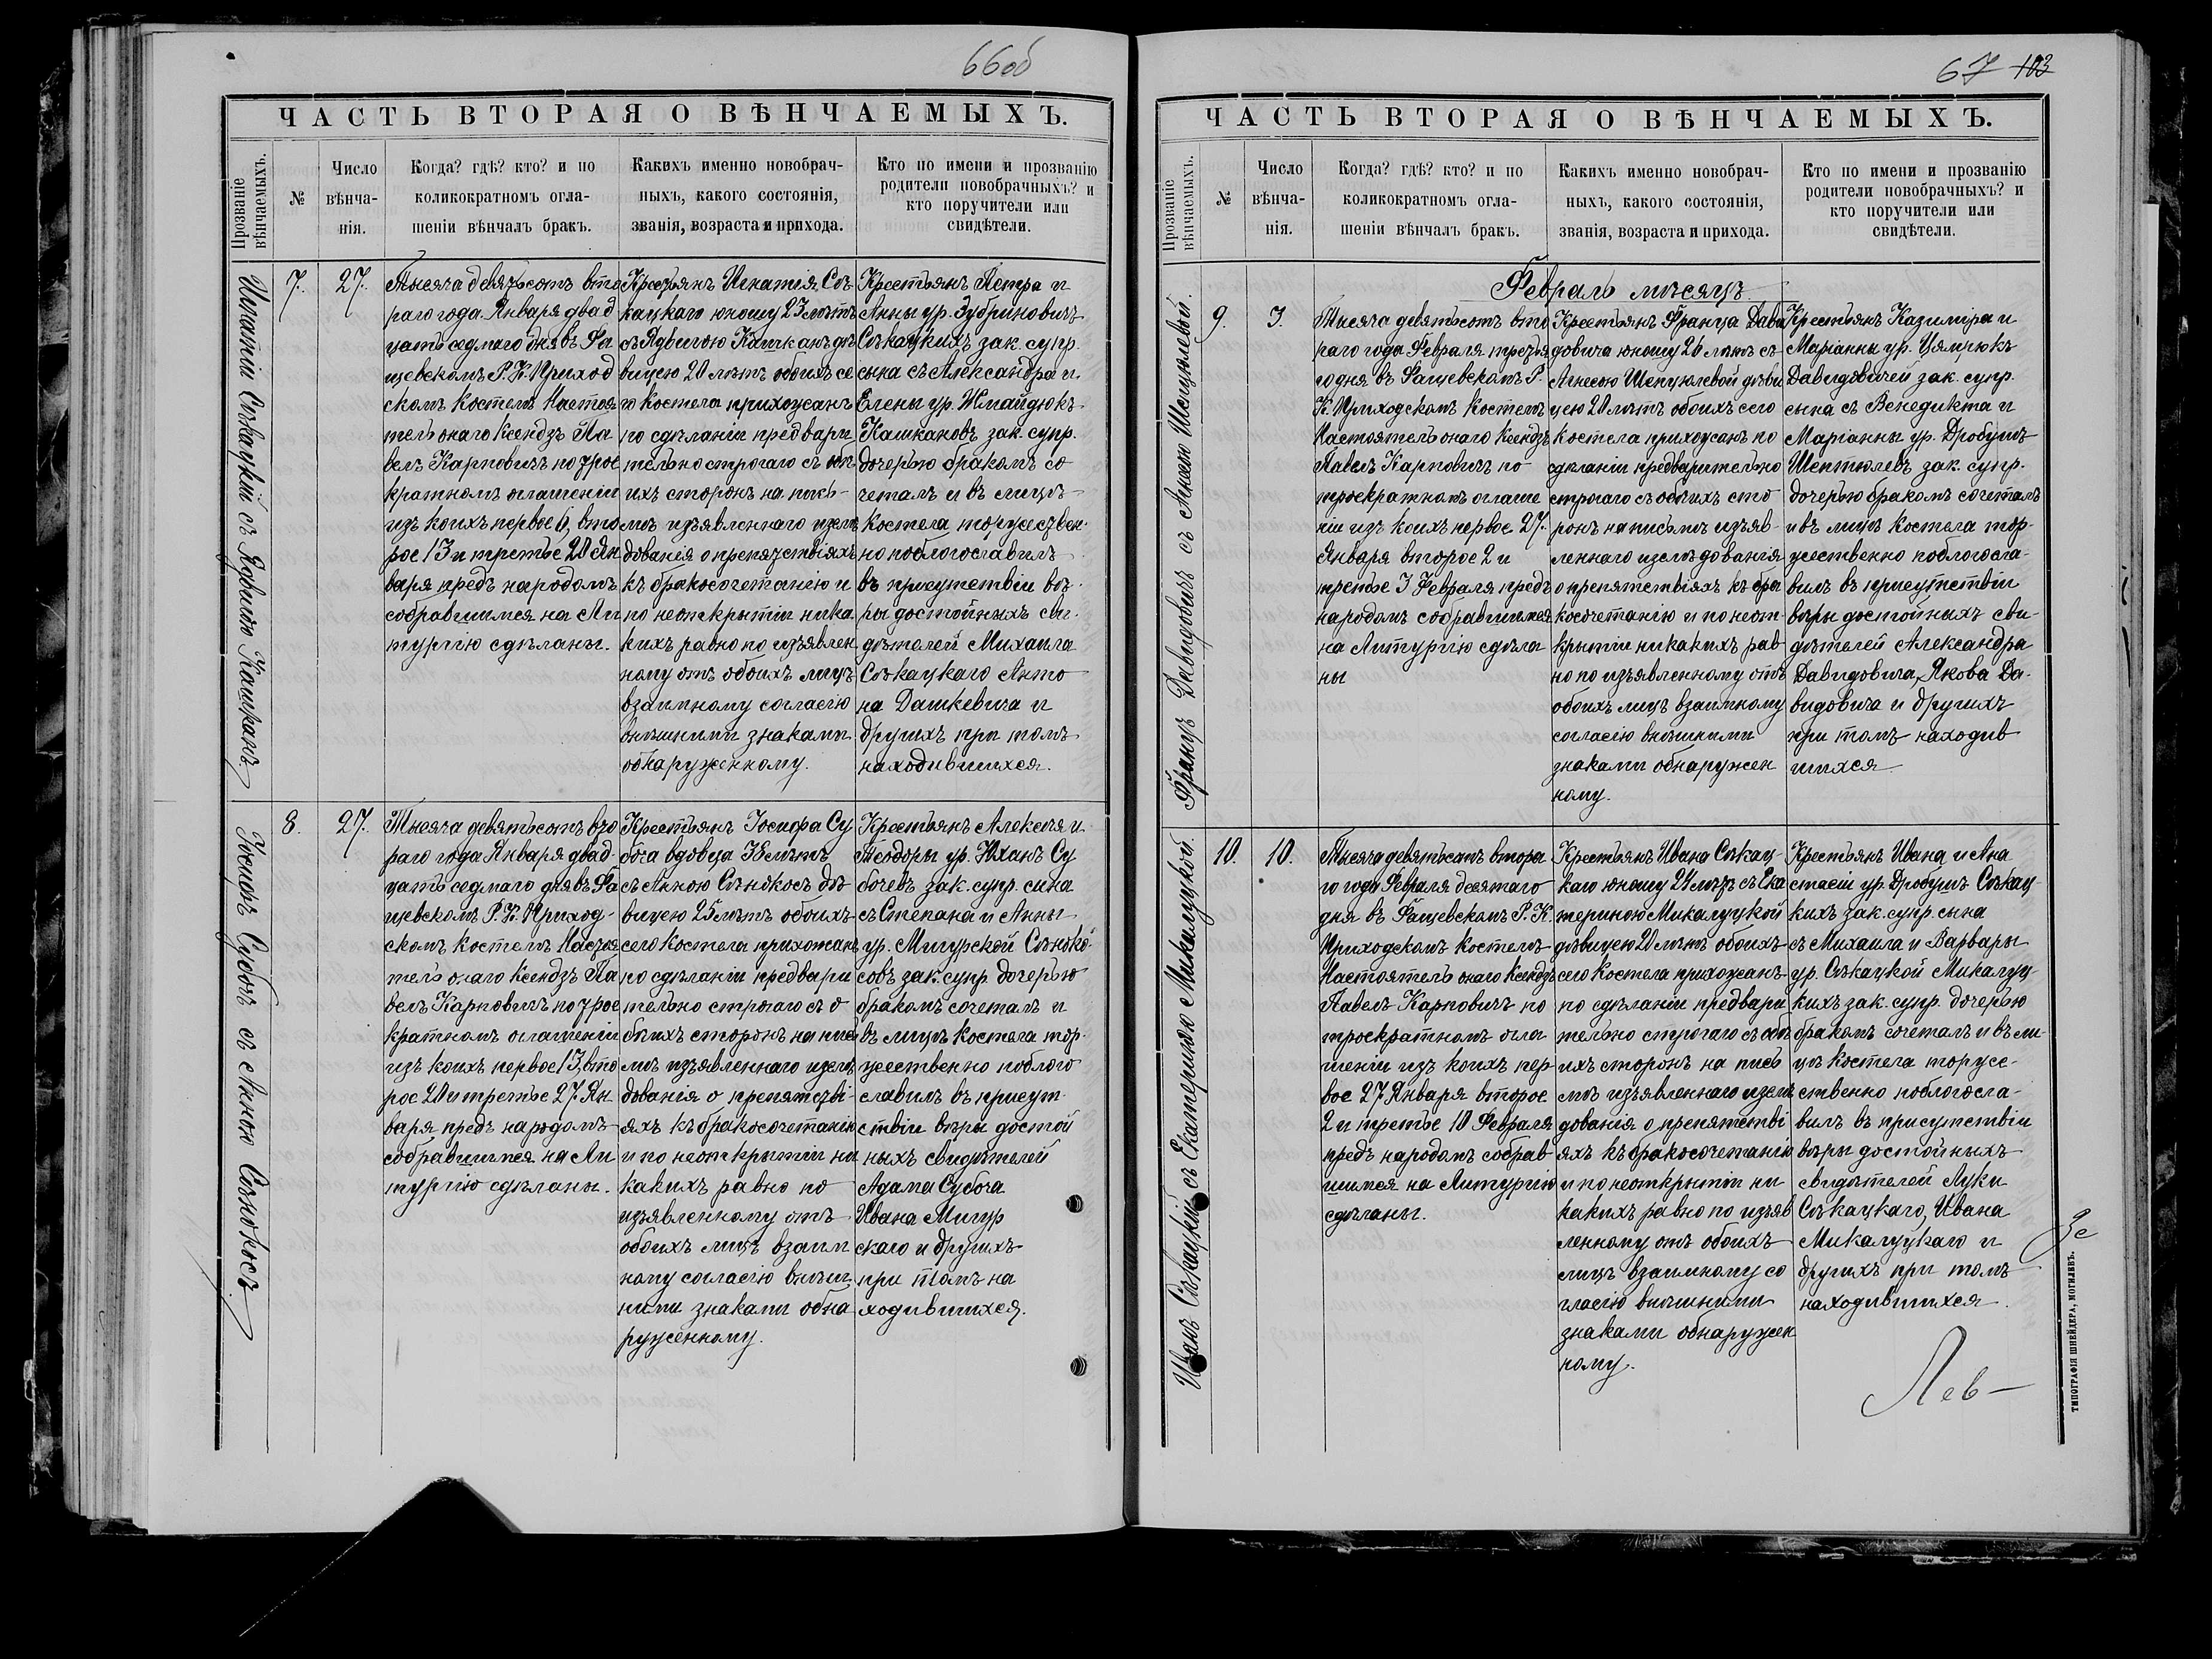 66об
ЧАСТЬ ВТОРАЯ О ВѢНЧАЕМЫХЪ.
Прозваніе вѣнчаемыхъ.
№
Число вѣнча-нія.
Когда? гдѣ? кто? и по
коликократномъ огла-
шеніи вѣнчалъ бракъ.
Какихъ именно новобрач-
ныхъ, какого состоянія,
званія, возраста и прихода.
Кто по имени и прозванію
родители новобрачныхъ? и
кто поручители или
свидѣтели.
Игнатій Сѣкацкій съ Ядвигою Кашканъ.
7.
27.
Тысяча девятьсотъ вто
раго года Января двад
цать седмаго дня въ Фа
щевскомъ Р. К. Приход
скомъ Костелѣ Настоя
тель онаго Ксендзъ Па
велъ Карповичъ по трое
кратномъ оглашеніи
изъ коихъ первое 6, вто
рое 13 и третье 20 Ян
варя предъ народомъ
собравшимся на Ли
тургію сдѣланы.
Крестьянъ Игнатія Сѣ
кацкаго юношу 23 лѣтъ
съ Ядвигою Кашканъ дѣ
вицею 20 лѣтъ обоихъ се
го Костела прихожанъ
по сдѣланіи предвари
тельно строгаго съ обо
ихъ сторонъ на пись-
мѣ изъявленнаго изслѣ
дованія о препятствіяхъ
къ бракосочетанію и
по неоткрытіи ника
кихъ равно по изъявлен
ному отъ обоихъ лицъ
взаимному согласію
внѣшними знаками
обнаруженному.
Крестьянъ Петра и
Анны ур. Зубриновичъ
Сѣкацкихъ зак. супр.
сына съ Александра и
Елены ур. Жмайдюкъ
Кашкановъ зак. супр.
дочерью бракомъ со
четалъ и въ лицѣ
Костела торжествен-
но поблагославилъ
въ присутствіи вѣ-
ры достойныхъ сви-
дѣтелей Михаила
Сѣкацкаго Анто
на Дашкевича и
другихъ при томъ
находившихся.
Іосифъ Субочъ съ Анною Сѣнокосъ
8.
27.
Тысяча девятьсотъ вто
раго года Января двад
цать седмаго дня въ Фа
щевскомъ Р. К. Приход-
скомъ Костелѣ Настоя
тель онаго Ксендзъ Па
велъ Карповичъ по трое
кратномъ оглашеніи
изъ коихъ первое 13, вто
рое 20 и третье 27 Ян
варя предъ народомъ
собравшимся на Ли
тургію сдѣланы.
Крестьянъ Іосифа Су
боча вдовца 38 лѣтъ
съ Анною Сѣнокосъ дѣ
вицею 25 лѣтъ обоихъ
сего Костела прихожанъ
по сдѣланіи предвари
тельно строгаго съ о
боихъ сторонъ на пись
мѣ изъявленнаго изслѣ
дованія о препятстві-
яхъ къ бракосочетанію
и по неоткрытіи ни
какихъ равно по
изъявленному отъ
обоихъ лицъ взаим
ному согласію внѣш
ними знаками обна
руженному.
Крестьянъ Алексѣя и
Ѳеодоры ур. Юханъ Су
бочевъ зак. супр. сына
съ Степана и Анны
ур. Мигурской Сѣноко-
совъ зак. супр. дочерью
бракомъ сочеталъ и
въ лицѣ Костела тор-
жественно поблаго
славилъ въ присут-
ствіи вѣры достой
ныхъ свидѣтелей
Адама Субоча
Ивана Мигур
скаго и другихъ
при томъ на
ходившихся.
67 103
ЧАСТЬ ВТОРАЯ О ВѢНЧАЕМЫХЪ.
Прозваніе вѣнчаемыхъ.
№
Число вѣнча-нія.
Когда? гдѣ? кто? и по
коликократномъ огла-
шеніи вѣнчалъ бракъ.
Какихъ именно новобрач-
ныхъ, какого состоянія,
званія, возраста и прихода.
Кто по имени и прозванію
родители новобрачныхъ? и
кто поручители или
свидѣтели.
Февраль мѣсяцъ
Францъ Давидовичъ съ Агнесою Шепцюлевой.
9.
3.
Тысяча девятьсотъ вто
раго года Февраля третья
го дня въ Фащевскомъ Р.
К. Приходскомъ Костелѣ
Настоятель онаго Ксендзъ
Павелъ Карповичъ по
троекратномъ оглаше
ніи изъ коихъ первое 27
Января второе 2 и
третье 3 Февраля предъ
народомъ собравшимся
на Литургію сдѣла
ны
Крестьянъ Франца Дави
довича юношу 26 лѣтъ съ
Агнесою Шепцюлевой дѣви
цею 20 лѣтъ обоихъ сего
Костела прихожанъ по
сдѣланіи предварительно
строгаго съ обоихъ сто
ронъ на письмѣ изъяв-
леннаго изслѣдованія
о препятствіяхъ къ бра
косочетанію и по неот-
крытіи никакихъ рав
но по изъявленному отъ
обоихъ лицъ взаимному
согласію внѣшними
знаками обнаружен
ному.
Крестьянъ Казиміра и
Маріанны ур. Цямрюкъ
Давидовичей зак. супр.
сына съ Венедикта и
Маріанны ур. Дробушъ
Шептюлевъ зак. супр.
дочерью бракомъ сочеталъ
и въ лицѣ Костела тор-
жественно поблагосла-
вилъ въ присутствіи
вѣры достойныхъ сви-
дѣтелей Александра
Давидовича, Якова Да-
видовича и другихъ
при томъ находив
шихся
Иванъ Сѣкацкій съ Екатериною Микалуцкой.
10.
10.
Тысяча девятьсотъ втора
го года Февраля десятаго
дня въ Фащевскомъ Р. К.
Приходскомъ Костелѣ
Настоятель онаго Ксендзъ
Павелъ Карповичъ по
троекратномъ огла
шеніи изъ коихъ пер
вое 27 Января второе
2 и третье 10 Февраля
предъ народомъ собрав
шимся на Литургію
сдѣланы.
Крестьянъ Ивана Сѣкац-
каго юношу 21 лѣтъ съ Ека
териною Микалуцкой
дѣвицею 20 лѣтъ обоихъ
сего Костела прихожанъ
по сдѣланіи предвари
тельно строгаго съ обо
ихъ сторонъ на пись
мѣ изъявленнаго изслѣ
дованія о препятстві
яхъ къ бракосочетанію
и по неоткрытіи ни
какихъ равно по изъяв
ленному отъ обоихъ
лицъ взаимному со
гласію внѣшними
знаками обнаружен
ному.
Крестьянъ Ивана и Ана
стасіи ур. Дробушъ Сѣкац-
кихъ зак. супр. сына
съ Михаила и Варвары
ур. Сѣкацкой Микалуц-
кихъ зак. супр. дочерью
бракомъ сочеталъ и въ ли-
цѣ Костела торже-
ственно поблагосла-
вилъ въ присутствіи
вѣры достойныхъ
свидѣтелей Луки
Сѣкацкаго, Ивана
Микалуцкаго и
другихъ при томъ
находившихся.
Лев-
ТИПОГРАФІЯ ШНЕЙДЕРА, МОГИЛЕВЪ.